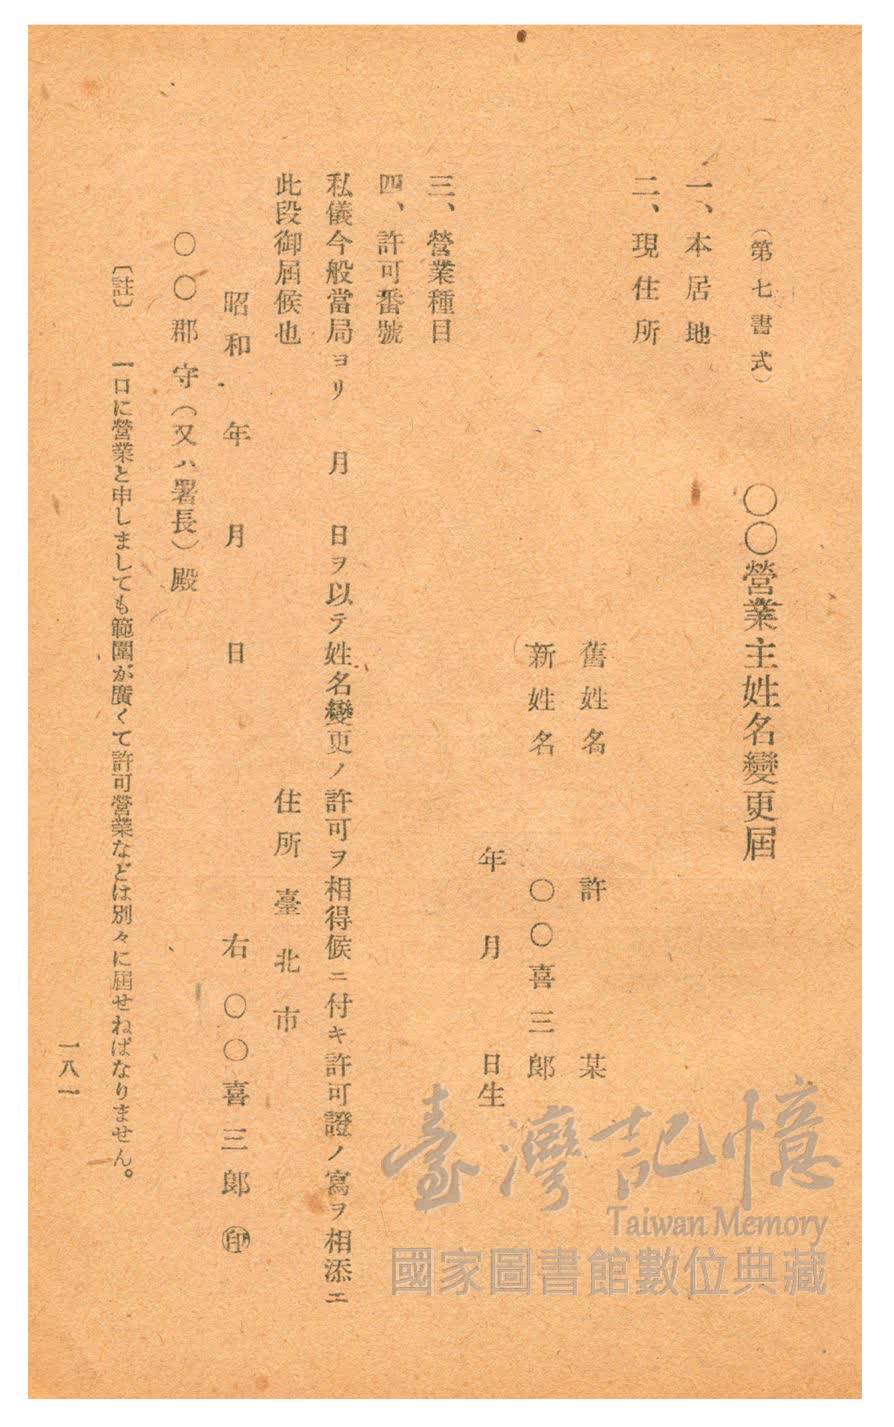 (第七書式)
〇〇營業主姓名變更屆
一、本居地
二、現住所
舊姓名　許　某
新姓名　〇〇喜三郎
年　月　日生
三、營業種目
四、許可番號
私儀今般當局ヨリ　月　日ヲ以テ姓名變更ノ許可ヲ相得候ニ付キ許可證ノ寫ヲ相添エ
此段御屆候也
住所臺北市
昭和　年　月　日
右　〇〇喜三郎㊞
〇〇郡守(又ハ署長)殿
〔註〕　一口に營業と申しましても範圍が廣くて許可營業などは別々に屆せねばなりません。
一八一
臺灣記憶
Taiwan Memory
國家圖書館數位典藏